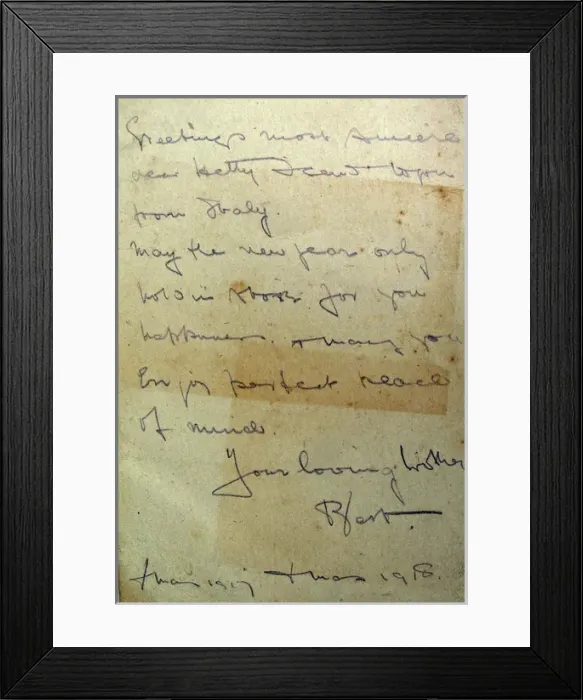 Greetings most sincere
dear Ketty I send to you
from Italy.
May the new year only
hold in store for you
happiness & may you
Enjoy perfect peace
of mind.
Your loving brother
Bert.
Xmas 1917 Xmas 1918.